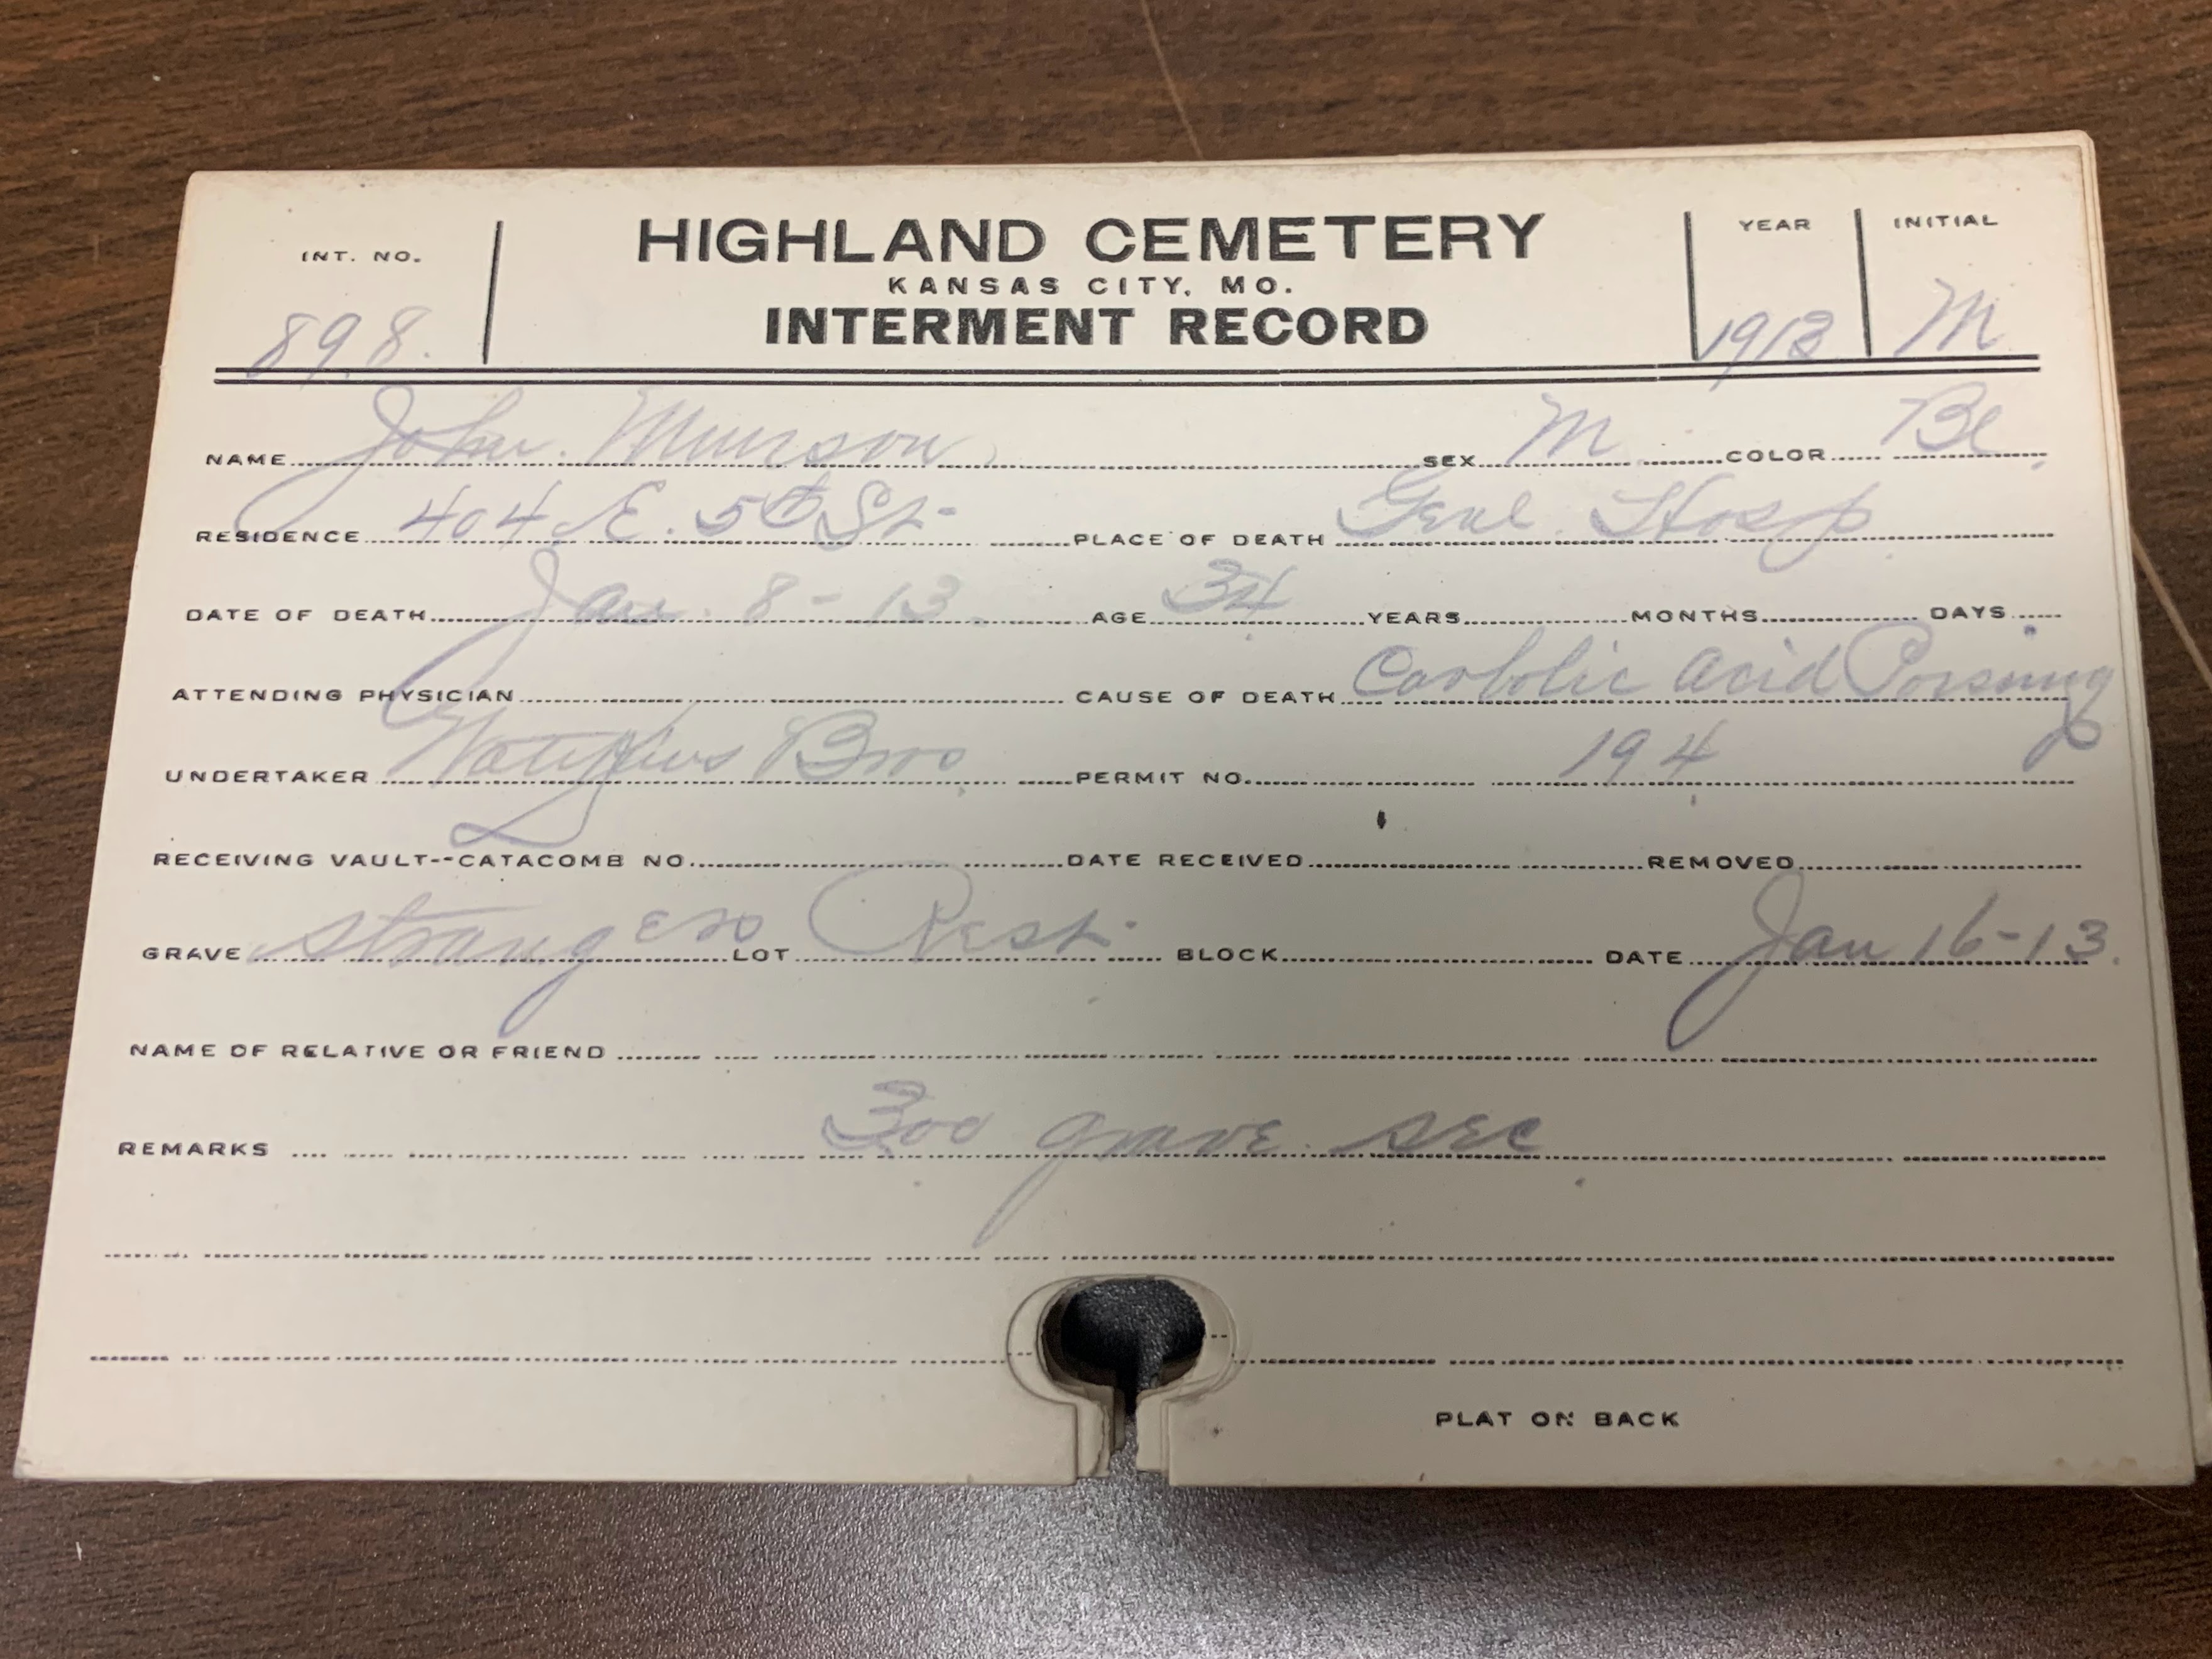 INT. NO. HIGHLAND CEMETERY YEAR INITIAL
KANSAS CITY, MO.
898. INTERMENT RECORD 1913 M
NAME John. Munson SEX M. COLOR Bl
RESIDENCE 404 E. 5th St. PLACE OF DEATH Genl. Hosp
DATE OF DEATH Jan. 8-13. AGE 34 YEARS MONTHS DAYS
ATTENDING PHYSICIAN CAUSE OF DEATH Carbolic Acid
UNDERTAKER Bros PERMIT NO. 194
RECEIVING VAULT--CATACOMB NO. DATE RECEIVED REMOVED
GRAVE Strangers LOT Rest. BLOCK DATE Jan 16-13.
NAME OF RELATIVE OR FRIEND
REMARKS 300 grave sec
PLAT ON BACK